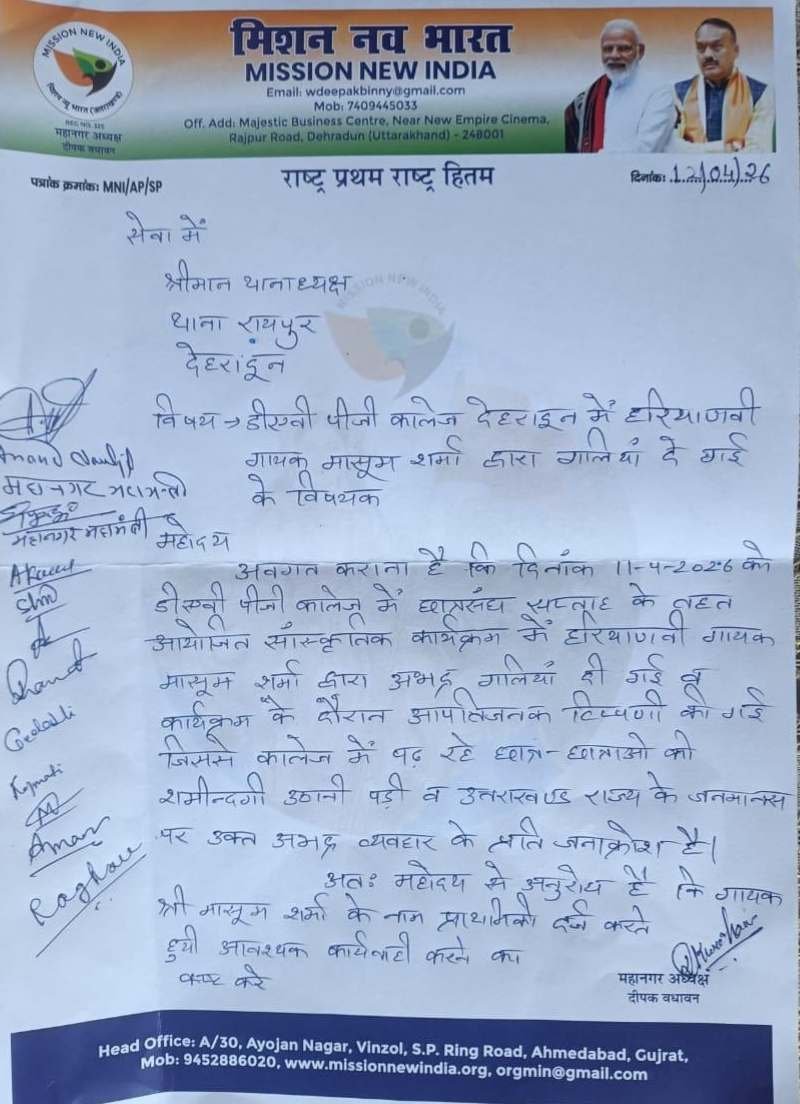 MISSION NEW INDIA
मिशन न्यू भारत (उत्तराखण्ड)
REG NO. 325
महानगर अध्यक्ष
दीपक वधावन
मिशन नव भारत
MISSION NEW INDIA
Email: wdeepakbinny@gmail.com
Mob: 7409445033
Off. Add: Majestic Business Centre, Near New Empire Cinema,
Rajpur Road, Dehradun (Uttarakhand) - 248001
पत्रांक क्रमांक: MNI/AP/SP
राष्ट्र प्रथम राष्ट्र हितम
दिनांक: 12/04/26
सेवा में
श्रीमान थानाध्यक्ष
थाना रायपुर
देहरादून
MISSION NEW INDIA
विषय → डीएवी पीजी कालेज देहरादून में हरियाणवी
गायक मासूम शर्मा द्वारा गालियां दे गई
के विषयक
महानगर महामंत्री
महानगर महामंत्री
महोदय
अवगत कराना है कि दिनांक 11-4-2026 को
डीएवी पीजी कालेज में छात्रसंघ सप्ताह के तहत
आयोजित सांस्कृतिक कार्यक्रम में हरियाणवी गायक
मासूम शर्मा द्वारा अभद्र गालियां दी गई व
कार्यक्रम के दौरान आपतिजनक टिप्पणी की गई
जिससे कालेज में पढ़ रहे छात्र-छात्राओ को
शर्मीन्दगी उठानी पड़ी व उत्तराखण्ड राज्य के जनमानस
पर उक्त अभद्र व्यवहार के प्रति जनाक्रोश है।
अतः महोदय से अनुरोध है कि गायक
श्री मासूम शर्मा के नाम प्राथमिकी दर्ज करते
हुयी आवश्यक कार्यवाही करने का
कष्ट करे
Aman
Raghav
महानगर अध्यक्ष
दीपक वधावन
Head Office: A/30, Ayojan Nagar, Vinzol, S.P. Ring Road, Ahmedabad, Gujrat,
Mob: 9452886020, www.missionnewindia.org, orgmin@gmail.com